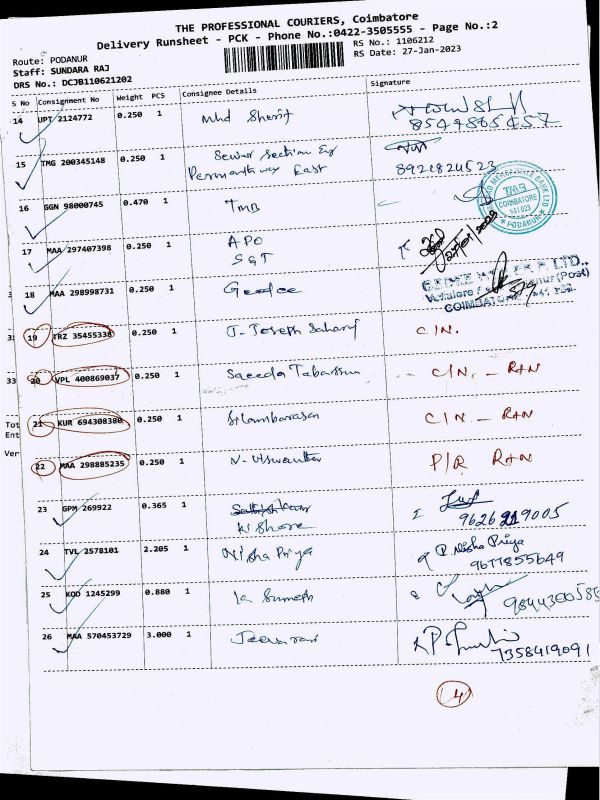 THE PROFESSIONAL COURIERS, Coimbatore
Delivery Runsheet - PCK - Phone No.:0422-3505555 - Page No.:2
Route: PODANUR
RS No.: 1106212
Staff: SUNDARA RAJ
RS Date: 27-Jan-2023
DRS No.: DCJB110621202
S No Consignment No Weight PCS Consignee Details Signature
14 UPT 2124772 0.250 1 Mhd Sherif
15 TMG 200345148 0.250 1 Section East 8921824523
16 GGN 98000745 0.470 1 TMB
TMB
COIMBATORE
641023
PODANUR
17 MAA 297407398 0.250 1 APO
SGT
18 MAA 298998731 0.250 1 Geedee
COIMBATORE
19 TRZ 35455338 0.250 1 J. Joseph C/N.
33 20 VPL 400869037 0.250 1 Saeeda C/N. - RAN
21 KUR 694308380 0.250 1 Silambarasan C/N - RAN
Tot
Ent
Ver
22 MAA 298885235 0.250 1 P/R RAN
23 GPM 269922 0.365 1 Kishore
24 TVL 2578101 2.205 1 Nisha Priya P. Nisha Priya
9677855649
25 KOD 1245299 0.880 1
26 MAA 570453729 3.000 1 7358419091
4